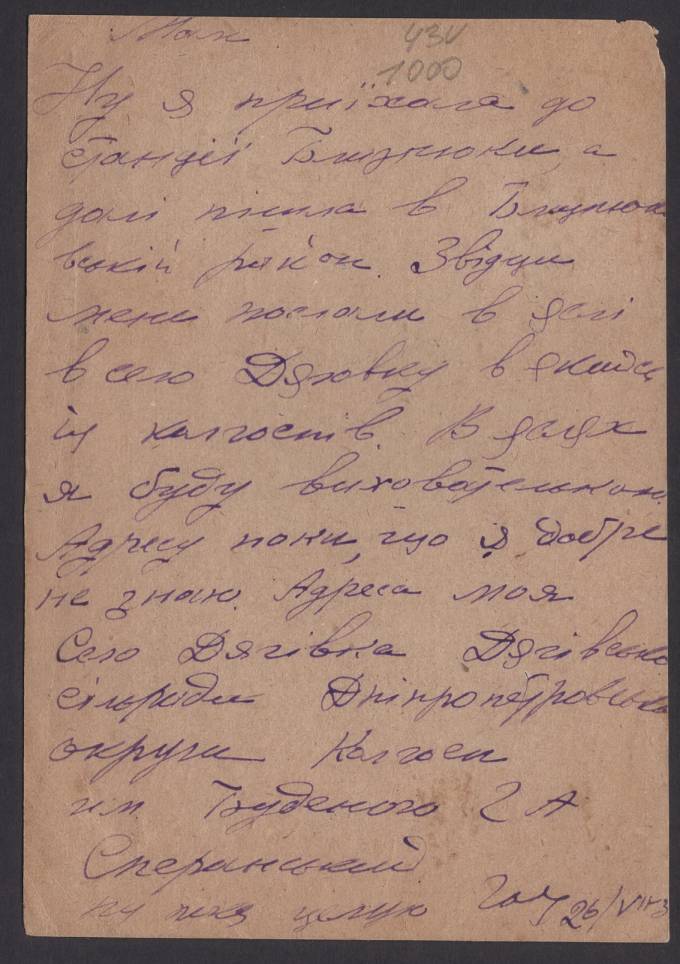 43V
1000
Ну я приїхала до
станції Близнюки, а
далі пішла в Близнюків
ській район. Звідци
мене послали в
в село Дяговку в якийсь
із колгоспів. В яслях
я буду виховательною.
Адресу поки, що я добре
не знаю. Адреса моя
Село Дягівка Дягівсько
сільради Дніпропетровсько
округи Колгосп
им. Буденого 2 А
Сперанський
ну пока целую 26/VII